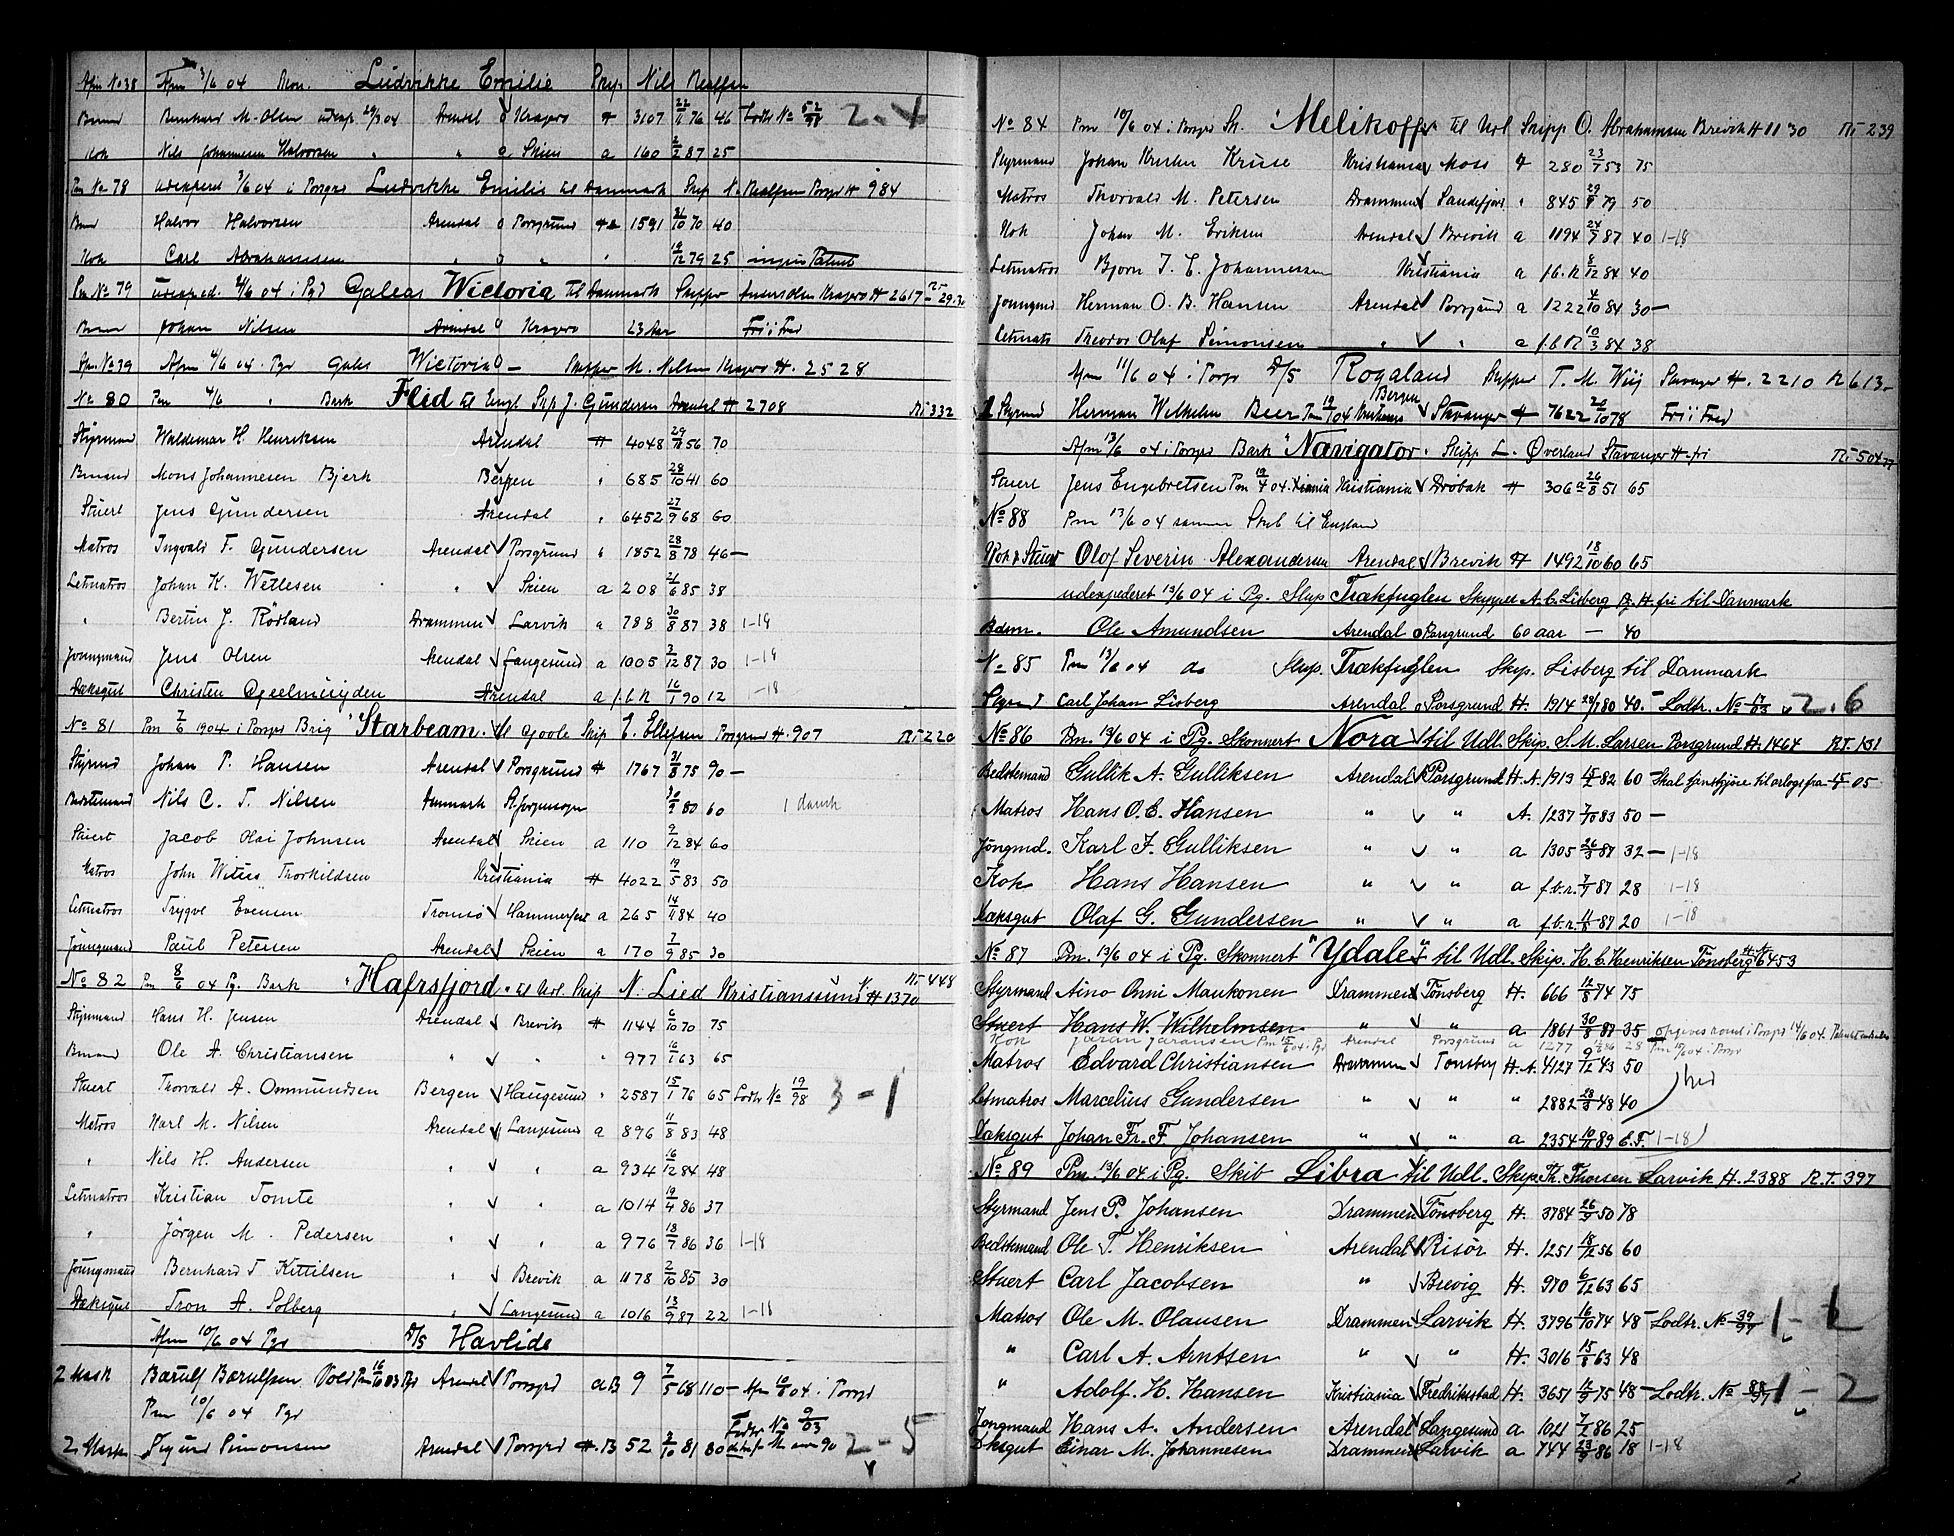 Afm No 38 Afm 3/6 04 Ludvikke Emilie Skip. Nils Realfsen
Bmand Bernhard M. Olsen udexp. 04 Arendal o Kragerø H 3107 22/11 76 46 Lodtr. No 52/98 2-4
Kok Nils Johannesen Halvorsen " " o Skien a 160 2/2 87 25
Pm No 78 udexpederet 3/6 04 i Porsgrd Ludvikke Emilie til Danmark Skip N. Realfsen Porsgr H 984
Bmd Halvor Halvorsen Arendal o Porsgrund 1591 31/10 70 40
Kok Carl Abrahamsen " o " " 19/12 79 25 ingen Patent
Pm No 79 udexped. 4/6 04 i Pgd Galeas Wictoria til Danmark Skipper Anders Olsen Kragerø H 2617 RT 29.30
Bmand Johan Nilsen Arendal o Kragerø 23 Aar Fri i Fred
Afm. No 39 Afm 4/6 04. Pgr Galeas Wictoria o - Skipper M. Nilsen Kragerø H. 2528
No 80 Pm 4/6 " Bark Fleid til Engl Skip J. Gundersen Arendal H 2708 RT 332
Styrmand Waldemar H Henriksen Arendal H 4048 29/12 56 70
Bmand Mons Johannesen Bjerk Bergen " 685 28/10 41 60
Stuert Jens Gundersen Arendal " 6452 27/9 68 60
Matros Ingvald F. Gundersen Arendal Porsgrund " 1852 28/8 78 46 -
Letmatros Johan K. Wetlesen " Skien a 208 21/6 85 38
" Bertin J. Rödland Drammen Larvik a 788 30/8 87 38 1-18
Joungmand Jens Olsen Arendal Langesund a 1005 3/12 87 30 1-18
Dæksgut Christen Geelmuyden Arendal a f.b.R 16/1 90 12 1-18
No 81 Pm 7/6 1904 i Porsgr Brig "Starbeam" til Goole Skip E. Ellefsen Porsgrund H. 907 RT 220
Styrmd Johan P. Hansen Arendal Porsgrund H 1767 31/8 75 90 -
Bedstemand Nils C. T. Nilsen Danmark 30/8 80 60 1 dansk
Stuert Jacob Olai Johnsen Arendal Skien a 110 9/12 84 60
Matros John Witus Thorkildsen Kristiania H 4022 19/5 83 50
Letmatros Trygve Evensen Tromsø Hammerfest a 265 14/11 84 40
Joungmand Paul Petersen Arendal Skien a 170 7/9 85 30
No 82 Pm 8/6 04 Pg. Bark "Hafrsfjord" til Udl. Skip N. Lied Kristianssund N H 1370 RT 448
Styrmand Hans H. Jensen Arendal Brevik H 1144 6/10 70 75
Bmand Ole A. Christiansen " " " 977 16/1 63 65
Stuert Thorvald A. Ommundsen Bergen Haugesund " 2587 15/1 76 65 Lodtr No 19/98 3-1
Matros Karl M. Nilsen Arendal Langesund a 896 11/8 83 48
" Nils H. Andersen " " a 934 16/12 84 48
Letmatros Kristian Tomte " " a 1014 19/4 86 37
" Jörgen M. Pedersen " " a 976 18/7 86 36 1-18
Joungmand Bernhard T Kittilsen " Brevik a 1178 2/10 85 30
Dæksgut Tron A. Solberg " Langesund a 1016 13/9 87 22 1-18
Afm 10/6 04 Pgr D/S Havlide
2 Mask Bærulf Bærulfsen Vold Pm 16/10 03 Pgr Arendal Porsgrd a B 9 7/5 68 110 - Afm 10/6 04 i Porsgr
Pm 10/6 04 Pgr
2 Mask Sigurd Simonsen Arendal Porsgrd H. B 52 2/10 81 80 Lodtr No 9/03 2-5
No 84 Pm 10/6 04 i Porsgrd Sk. "Melikoff" til Udl Skipp O. Abrahamsen Brevik H 1130 RT 239
Styrmand Johan Kruse Kristiania Moss H 280 23/7 53 75
Matros Thorvald M. Petersen Drammen Sandefjord " 845 29/9 79 50
Kok Johan M. Eriksen Arendal Brevik a 1194 24/7 87 40 1-18
Letmatros Bjarn T. E. Johannessen Kristiania a f.b.R 8/12 84 40
Joungmd Herman O. B. Hansen Arendal Porsgrund a 1222 4/10 84 30 -
Letmats Theodor Olaf Simonsen " " a f.b R 10/3 84 38
Afm 11/6 04 i Porsgr D/S Rogaland Skipper T. M. Wiig Stavanger H. 2210 R 613 -
2 Styrmd Herman Wilhelm Beer Pm 19/ 04 Bergen Stavanger H 7622 20/10 78 Fri i Fred
Afm 13/6 04 i Porsgrd Bark "Navigator" Skipp L. Överland Stavanger H fri RT 504.77
Stuert Jens Engebretsen Pm 19/4 04 Xiania Kristiania Dröbak H 306a 26/8 51 65
No 88 Pm 13/6 04 samme Skib til England
Kok & Stuert Olof Severin Alexandersen Arendal Brevik H 1492 18/10 60 65
udexpederet 13/6 04 i Pg. Slup Trækfuglen Skipper A. C. Lisberg Pg. H. fri til Danmark
Bdsm. Ole Amundsen Arendal o Porsgrund 60 aar - 40
No 85 Pm 13/6 04 do Slup. Trækfuglen Skip. Lisberg til Danmark
Styrmd Carl Johan Lisberg Arendal o Porsgrund H. 1914 29/1 80 40. - Lodtr. No 17/03 2.6
No 86 Pm. 13/6 04 i Pg. Skonnert Nora til Udl. Skip. S. M. Larsen Porsgrund H. 1464 R.T. 151
Bedstemand Gullik A. Gulliksen Arendal Porsgrund H. A. 1913 15/2 82 60 - Skal tjenstgjøre til orlogs fra 05
Matros Hans O. E. Hansen " " A. 1237 7/10 83 50 -
Jöngmd. Karl J. Gulliksen " " a 1305 26/3 87 32 - 1-18
Kok Hans Hansen " " a f.b.r. 7/1 87 28 1-18
Dæksgut Olaf G. Gundersen " " a f.b.r. 11/8 87 20 1-18
No 87 Pm. 13/6 04 i Pg. Skonnert "Ydale" til Udl. Skip. H. C. Henriksen Tönsberg H. No 6453
Styrmand Aino Onni Maukonen Drammen Tönsberg H. 666 12/8 74 75
Stuert Hans W. Wilhelmsen " " a 1861 30/8 87 35 opgives römt i Porsgr 14/6 04.
Kok Jaran Jaransen Pm 15/6 04 i Pgr Arendal Porsgrund a 1277 86 28 Pm 15/6 04 i Porsgr
Matros Edvard Christiansen Drammen Tönsberg H. A. 4127 9/12 43 50
Letmatros Marcelius Gundersen " " " 2882 28/3 48 40
Dæksgut Johan Fr. F. Johansen " " a 2354 10/11 89 C.F. 1-18
No 89 Pm. 13/6 04 i Pg. Skib Libra til Udl. Skip. Th. Thorsen Larvik H. 2388 R.T. 397
Styrmand Jens P. Johansen Drammen Tönsberg H. 3784 26/9 50 78
Bedstemand Ole T. Henriksen Arendal Risör H. 1251 18/12 56 60
Stuert Carl Jacobsen " Brevig H. 970 6/12 63 65
Matros Ole M. Olausen Drammen Larvik H. 3796 16/10 74 48 - Lodtr. No 39/97 1-1
" Carl A. Arntsen " " H. 3016 15/8 63 48
" Adolf. H. Hansen Kristiania Fredrikstad H. 3651 12/9 75 48 - Lodtr. No 88/97 1-2
Jöngmand Hans A. Andersen Arendal Langesund a 1021 7/2 86 25
Dksgut Einar M. Johannesen Drammen Larvik a 744 23/9 86 18 1-18